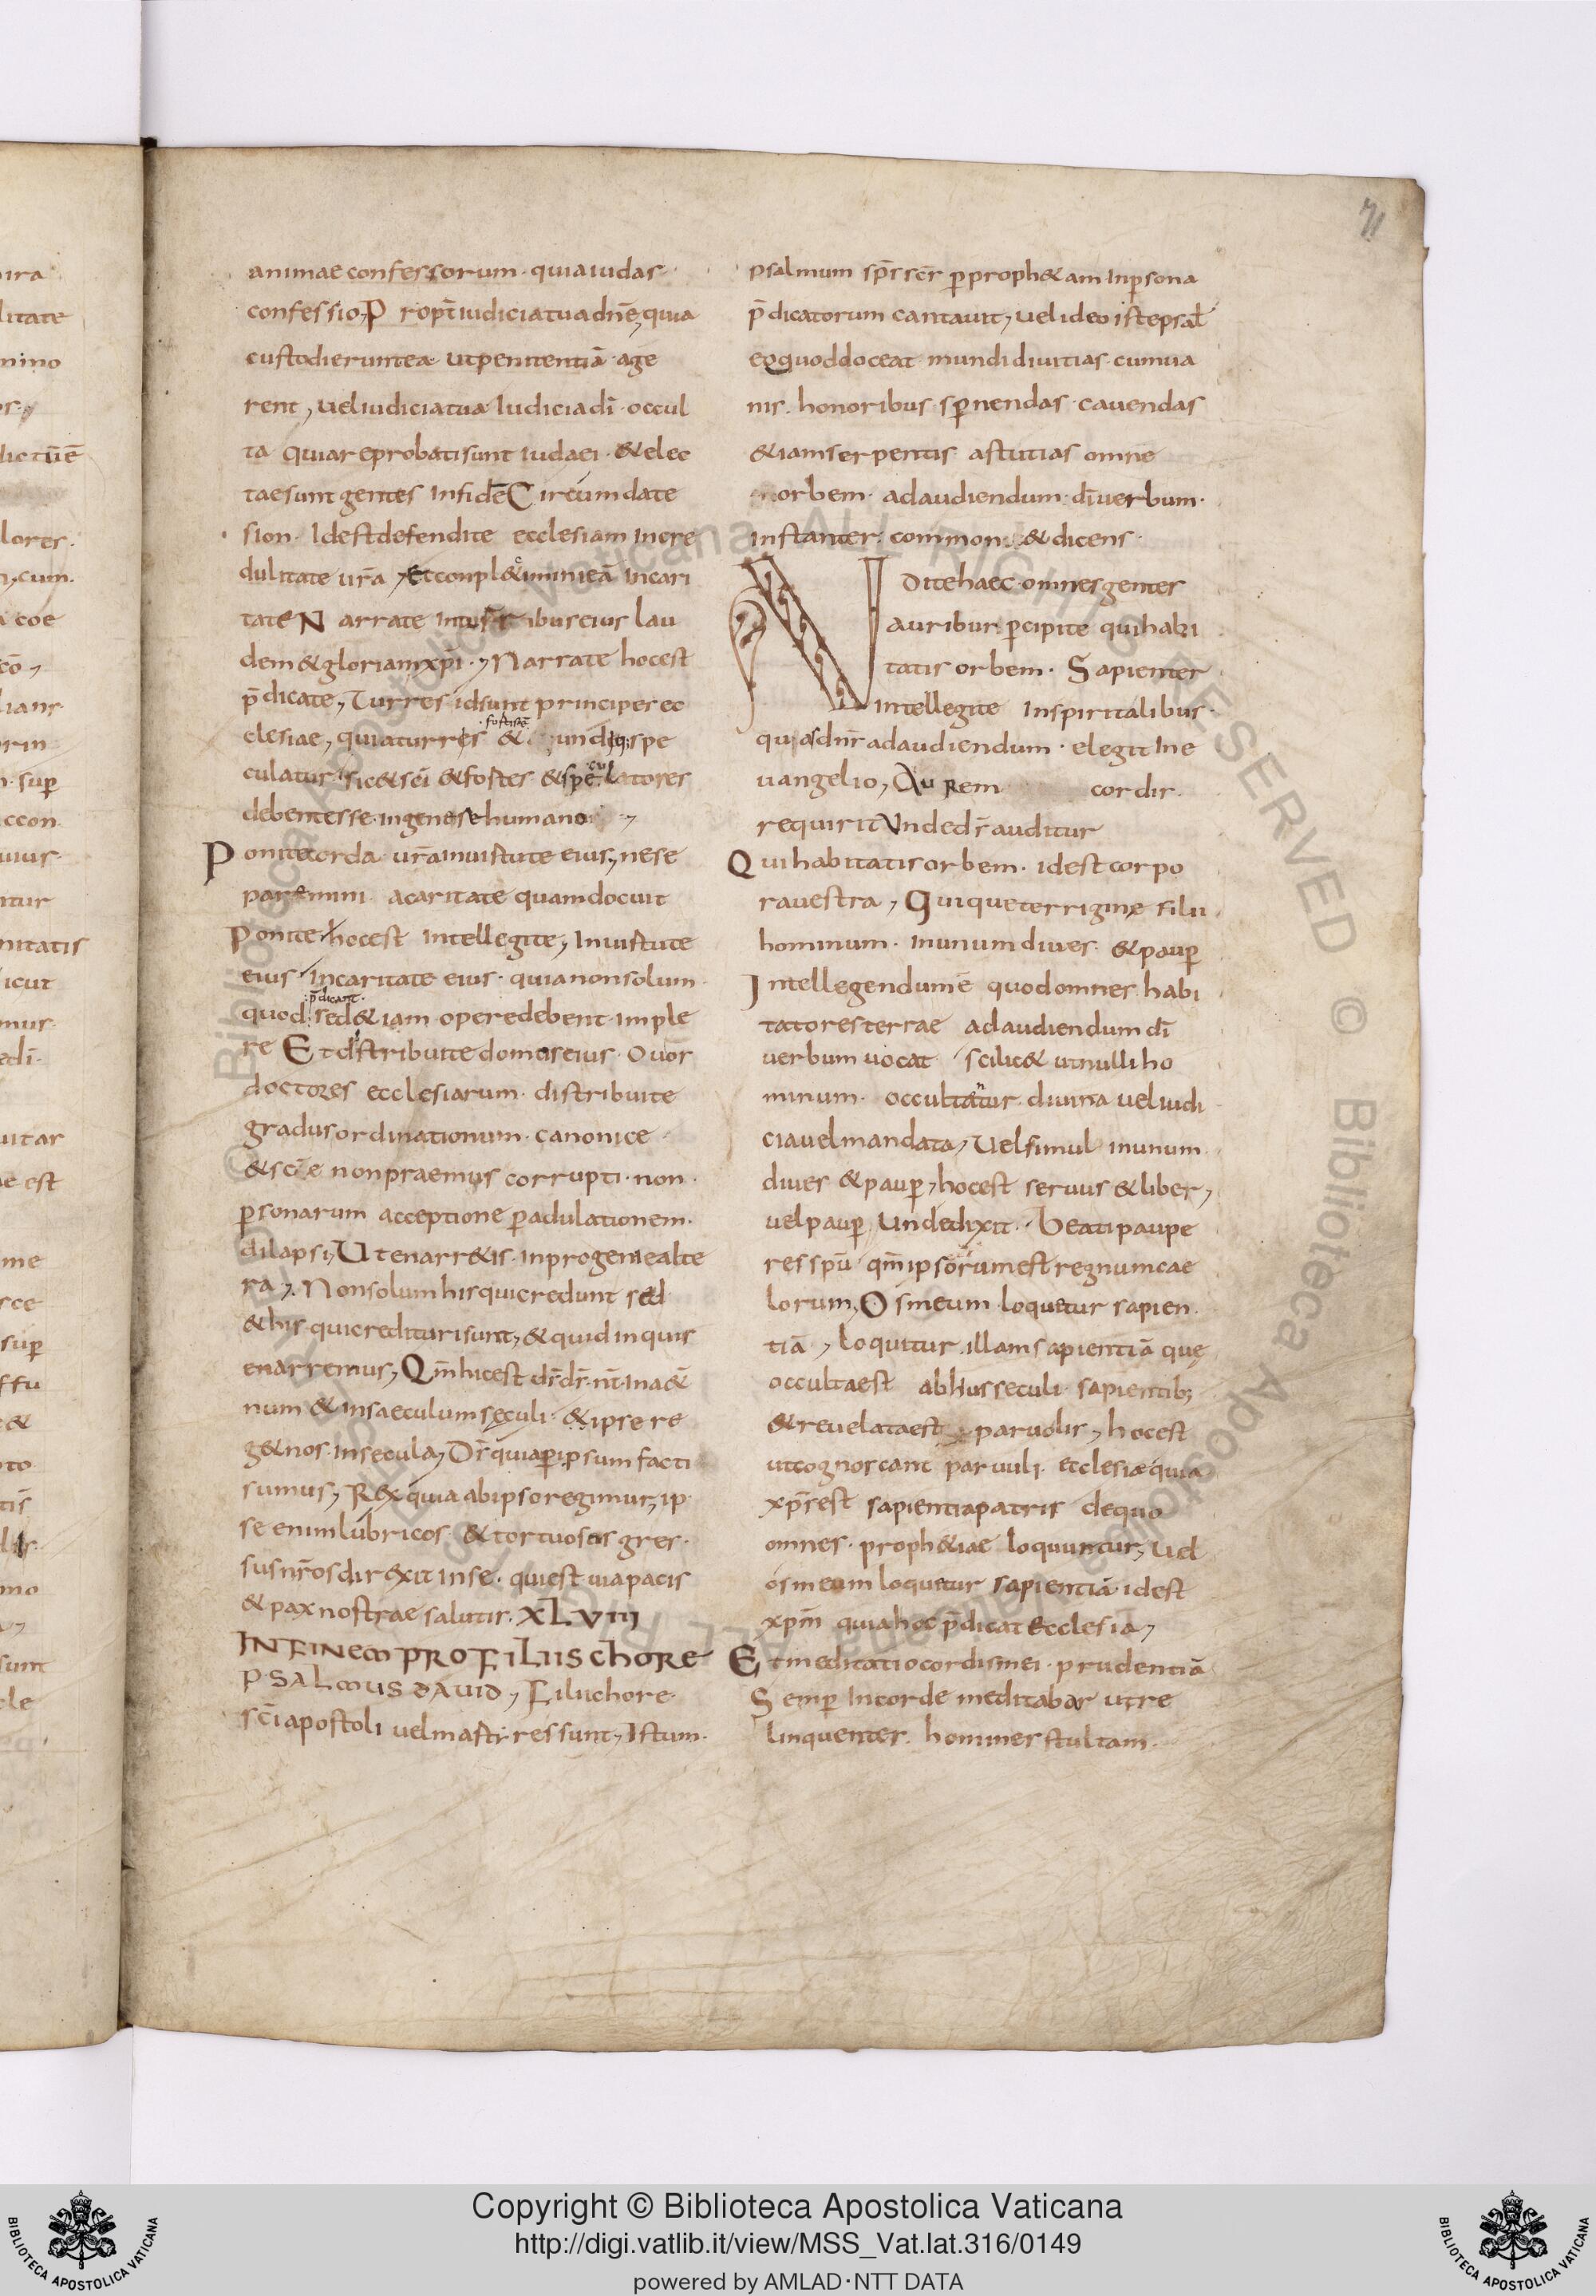 71
animae confessorum · quia iudas ·
confessio, P ropt̄ iudicia tua dn̄e, quia
custodierunt ea · ut penitentiā · age
rent, uel iudicia tua · Iudicia dī · occul
ta quia reprobati sunt iudaei · & elec
tae sunt gentes in fidē C ircum date
sion · Idest defendite ecclesiam incre
dulitate ur̄a, Et conpl& inimicā in cari
tate N arrate in turribus eius lau
dem & gloriam xp̄i ·, Narrate hoc est
p̄dicate, Turres id sunt principes ec
clesiae, quia turres & undiq; spe
culatur sic & sc̄i & fortes & speculatores
debent esse in genere humano ,
P onite corda ur̄a in uirtute eius, ne se
paremini a caritate quam docuit
Ponite hoc est intellegite, In uirtute
eius in caritate eius · quia non solum
p̄dicant ·
quod sed & iam opere debent imple
re E t distribuite domus eius · O uos
doctores ecclesiarum · distribuite
gradus ordinationum · canonice ·
& sc̄e non praemus corrupti · non ·
ꝑsonarum acceptione ꝑ adulationem ·
dilapsi, U t enarr&is · in progenie alte
ra, · Non solum his qui credunt sed
& his qui credituri sunt, & quid inquis
enarremus, Qm̄ hic est ds̄ ds̄ · nr̄ · in a&̄
num & in saeculum sęculi · & ipse re
g& nos · in secula, Ds̄ quia ꝑ ipsum facti
sumus, Rex quia ab ipso regimur, ip
se enim lubricos & tortuosos gres ·
sus nr̄os direxit in se · qui est uia pacis
& pax nostrae salutis · XLVIII
IN FINEM PRO FILIIS CHORE
PSALMUS DAVID, Filii chore ·
sc̄i apostoli uel martires sunt, Istum ·
psalmum sp̄s sc̄s ꝑ proph&am in ꝑsona
p̄dicatorum cantauit, uel ideo iste psal̄
eo quod doceat mundi diuitias · cum ua
nis · honoribus · spernendas · cauendas
& iam serpentis astutias omne
orbem · ad audiendum · dī uerbum ·
instanter · common & dicens ·
A uditehaec · omnes gentes
auribus ꝑcipite qui habi
tatis orbem · Sapienter
intellegite in spiritalibus ·
quas dn̄s ad audiendum · elegit in e
uangelio, Aurem cordis
requirit Unde ds̄ auditur
Q ui habitatis orbem · idest corpo
ra uestra, Qui que terriginę filii
hominum · in unum diues · & pauꝑ
I ntellegendum ē quod omnes habi
tatores terrae ad audiendum dī
uerbum uocat scilic& ut nulli ho
minum · occultantur diuina uel iudi
cia uel mandata, Uel simul in unum
diues & pauꝑ, hoc est seruus & liber,
uel pauꝑ Unde dixit · Beati paupe
res spū qm̄ ipsorum est regnum cae
lorum, O s meum loquetur sapien
tiā, Loquitur illam sapientiā quę
occulta est ab huius seculi sapientib;
& reuelata est paruolis, hoc est
ut cognoscant paruuli ecclesiae quia
xp̄s est sapientia patris de quo
omnes · proph&iae loquuntur, Uel
os meum loquetur sapientiā · idest
xpm̄ quia hoc p̄dicat ecclesia,
E t meditatio cordis mei · prudentiā
S emꝑ in corde meditabar ut re
linquentes homines stultam ·
Copyright © Biblioteca Apostolica Vaticana
http://digi.vatlib.it/view/MSS_Vat.lat.316/0149
powered by AMLAD·NTT DATA